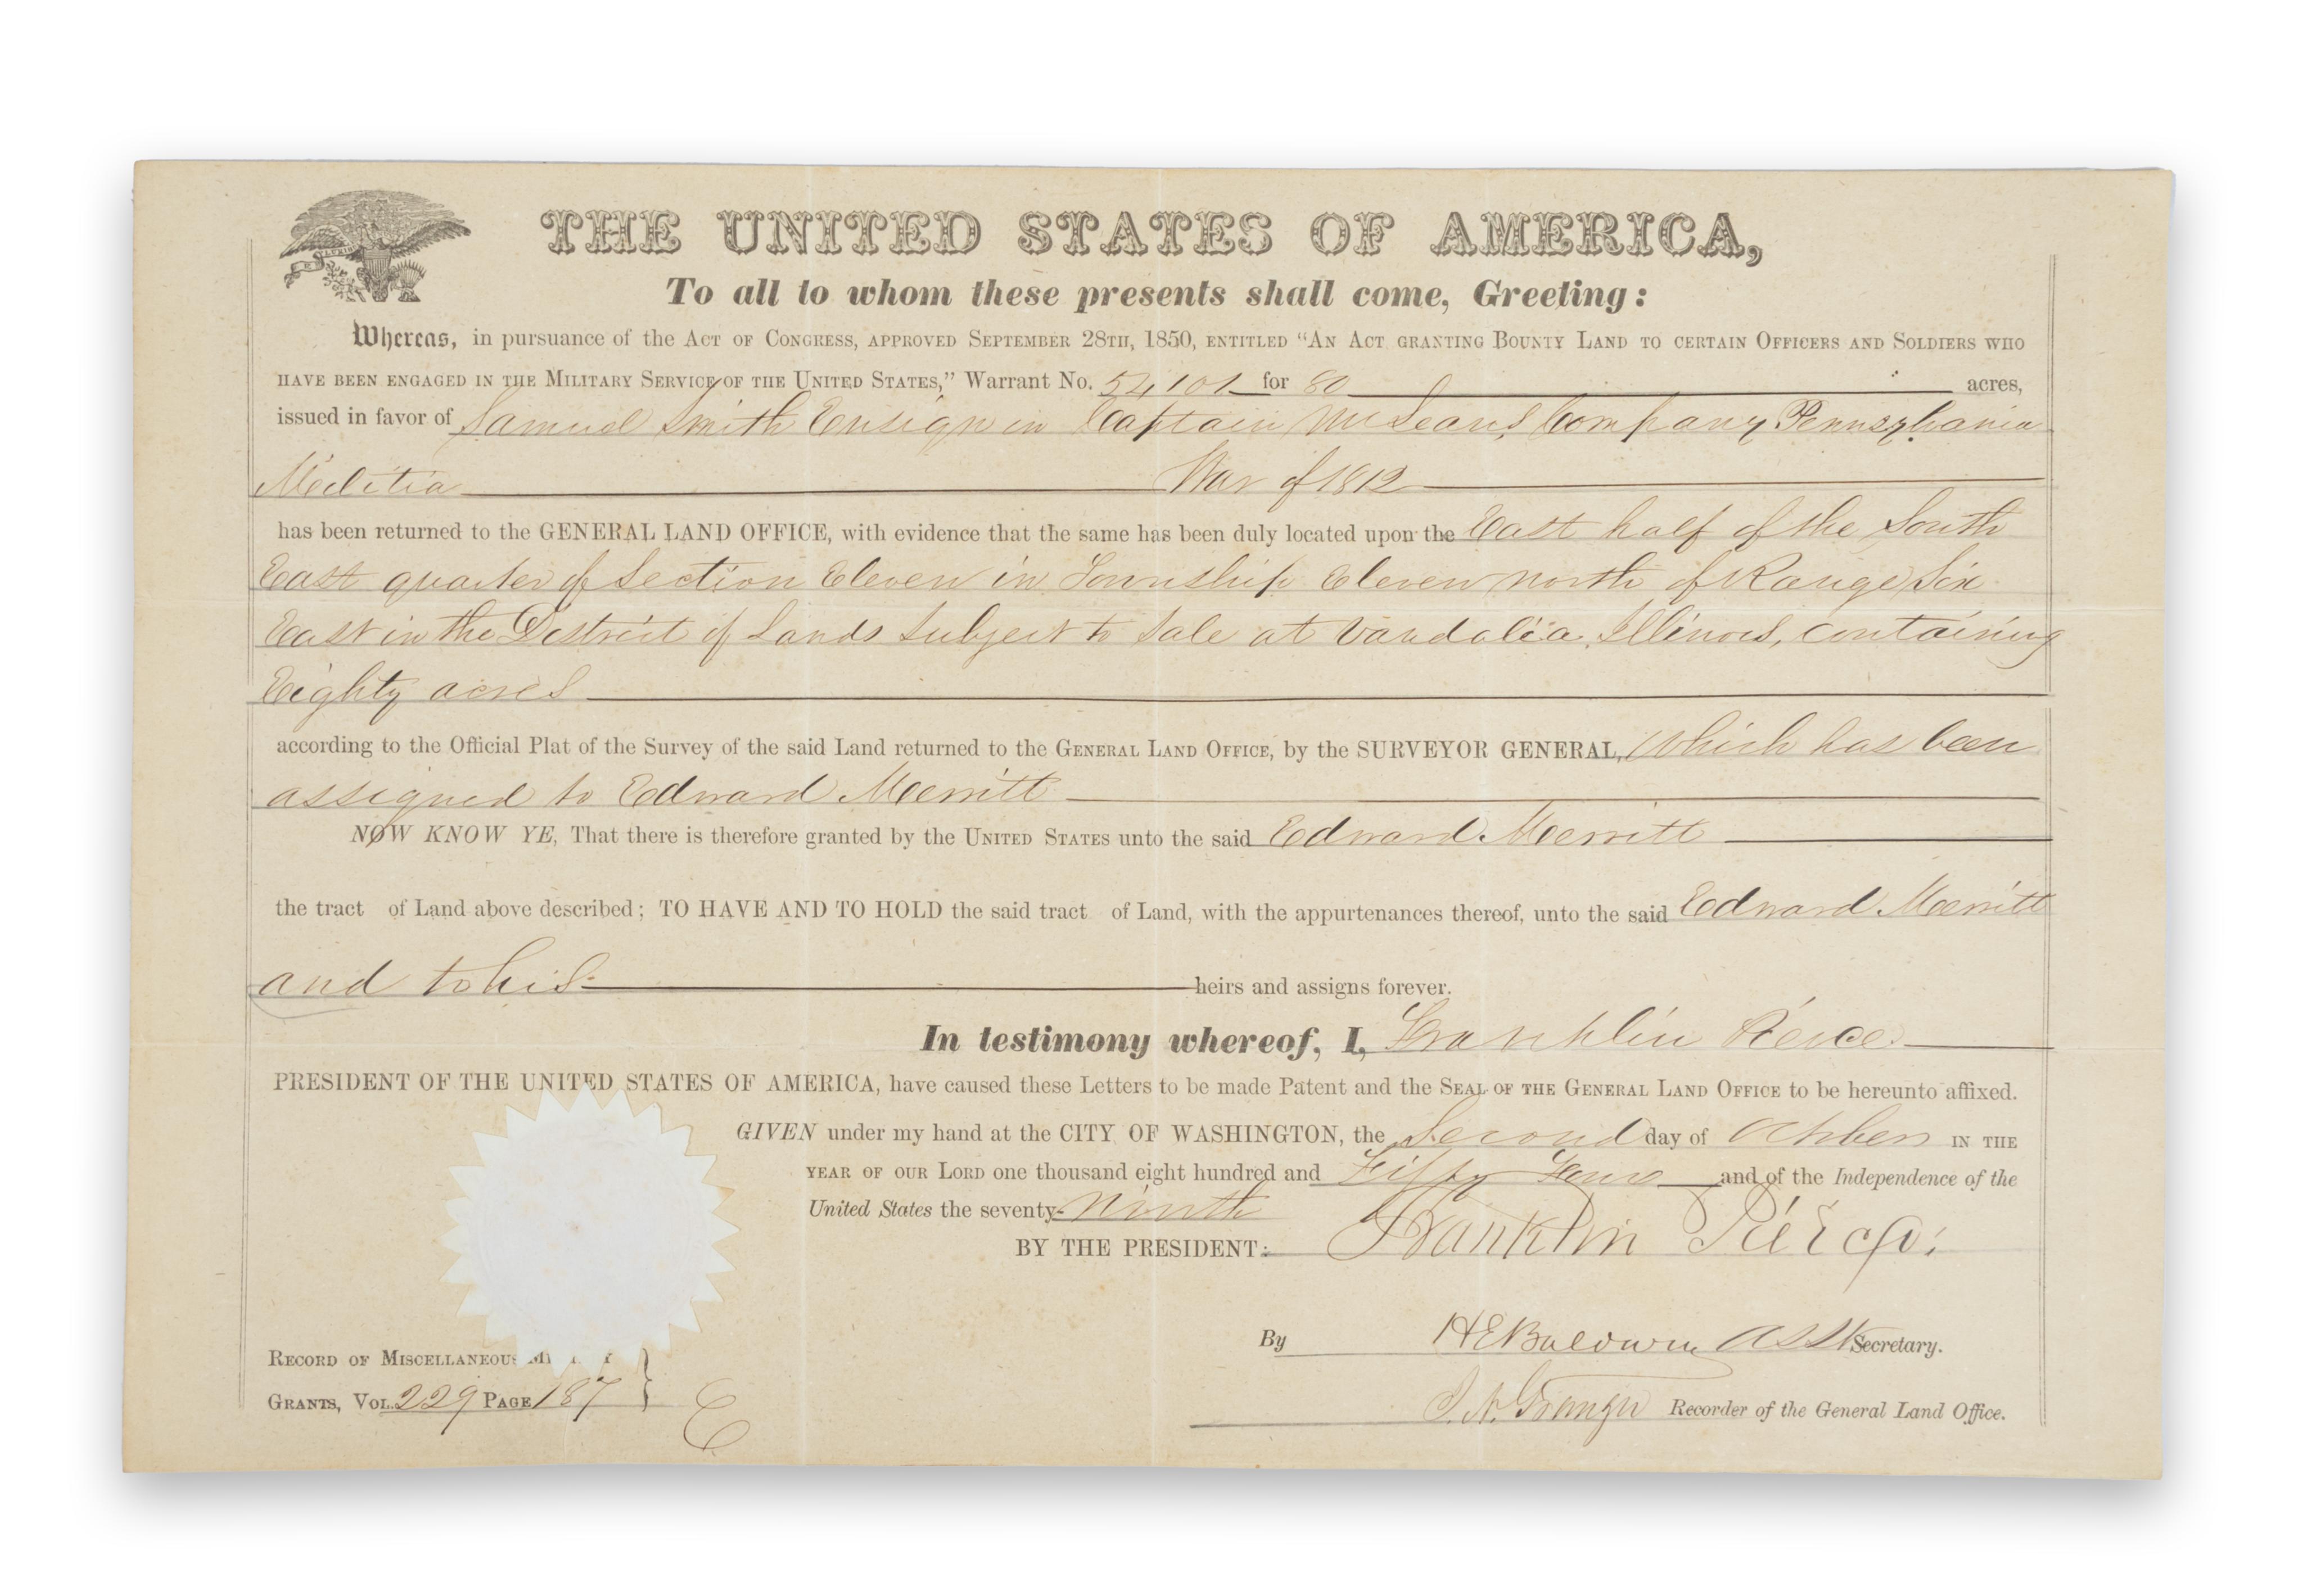 THE UNITED STATES OF AMERICA,
To all to whom these presents shall come, Greeting:
Whereas, in pursuance of the Act of Congress, approved September 28th, 1850, entitled "An Act granting Bounty Land to certain Officers and Soldiers who
have been engaged in the Military Service of the United States," Warrant No. 54101 for 80 acres,
issued in favor of Samuel Smith Ensign in Captain McLeans Company Pennsylvania
Militia War of 1812
has been returned to the GENERAL LAND OFFICE, with evidence that the same has been duly located upon the East half of the South
East quarter of Section Eleven in Township Eleven north of Range Six
East in the District of Lands Subject to Sale at Vandalia, Illinois, containing
Eighty acres
according to the Official Plat of the Survey of the said Land returned to the General Land Office, by the SURVEYOR GENERAL, which has been
assigned to Edward Merritt
NOW KNOW YE, That there is therefore granted by the United States unto the said Edward Merritt
the tract of Land above described; TO HAVE AND TO HOLD the said tract of Land, with the appurtenances thereof, unto the said Edward Merritt
and to his heirs and assigns forever.
In testimony whereof, I, Franklin Pierce
PRESIDENT OF THE UNITED STATES OF AMERICA, have caused these Letters to be made Patent and the Seal of the General Land Office to be hereunto affixed.
GIVEN under my hand at the CITY OF WASHINGTON, the Second day of October in the
year of our Lord one thousand eight hundred and Fifty Four and of the Independence of the
United States the seventy-Ninth
BY THE PRESIDENT: Franklin Pierce
By H E Baldwin Asst Secretary.
Record of Miscellaneous
Grants, Vol. 229 Page 187 } E
J. N. Granger Recorder of the General Land Office.